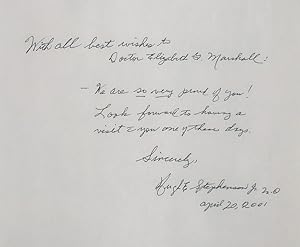 With all best wishes to
Doctor Elizabeth G. Marshall:
- We are so very proud of you!
Look forward to having a
visit & you one of these days.
Sincerely,
Hugh E Stephenson Jr M.D
april 20, 2001